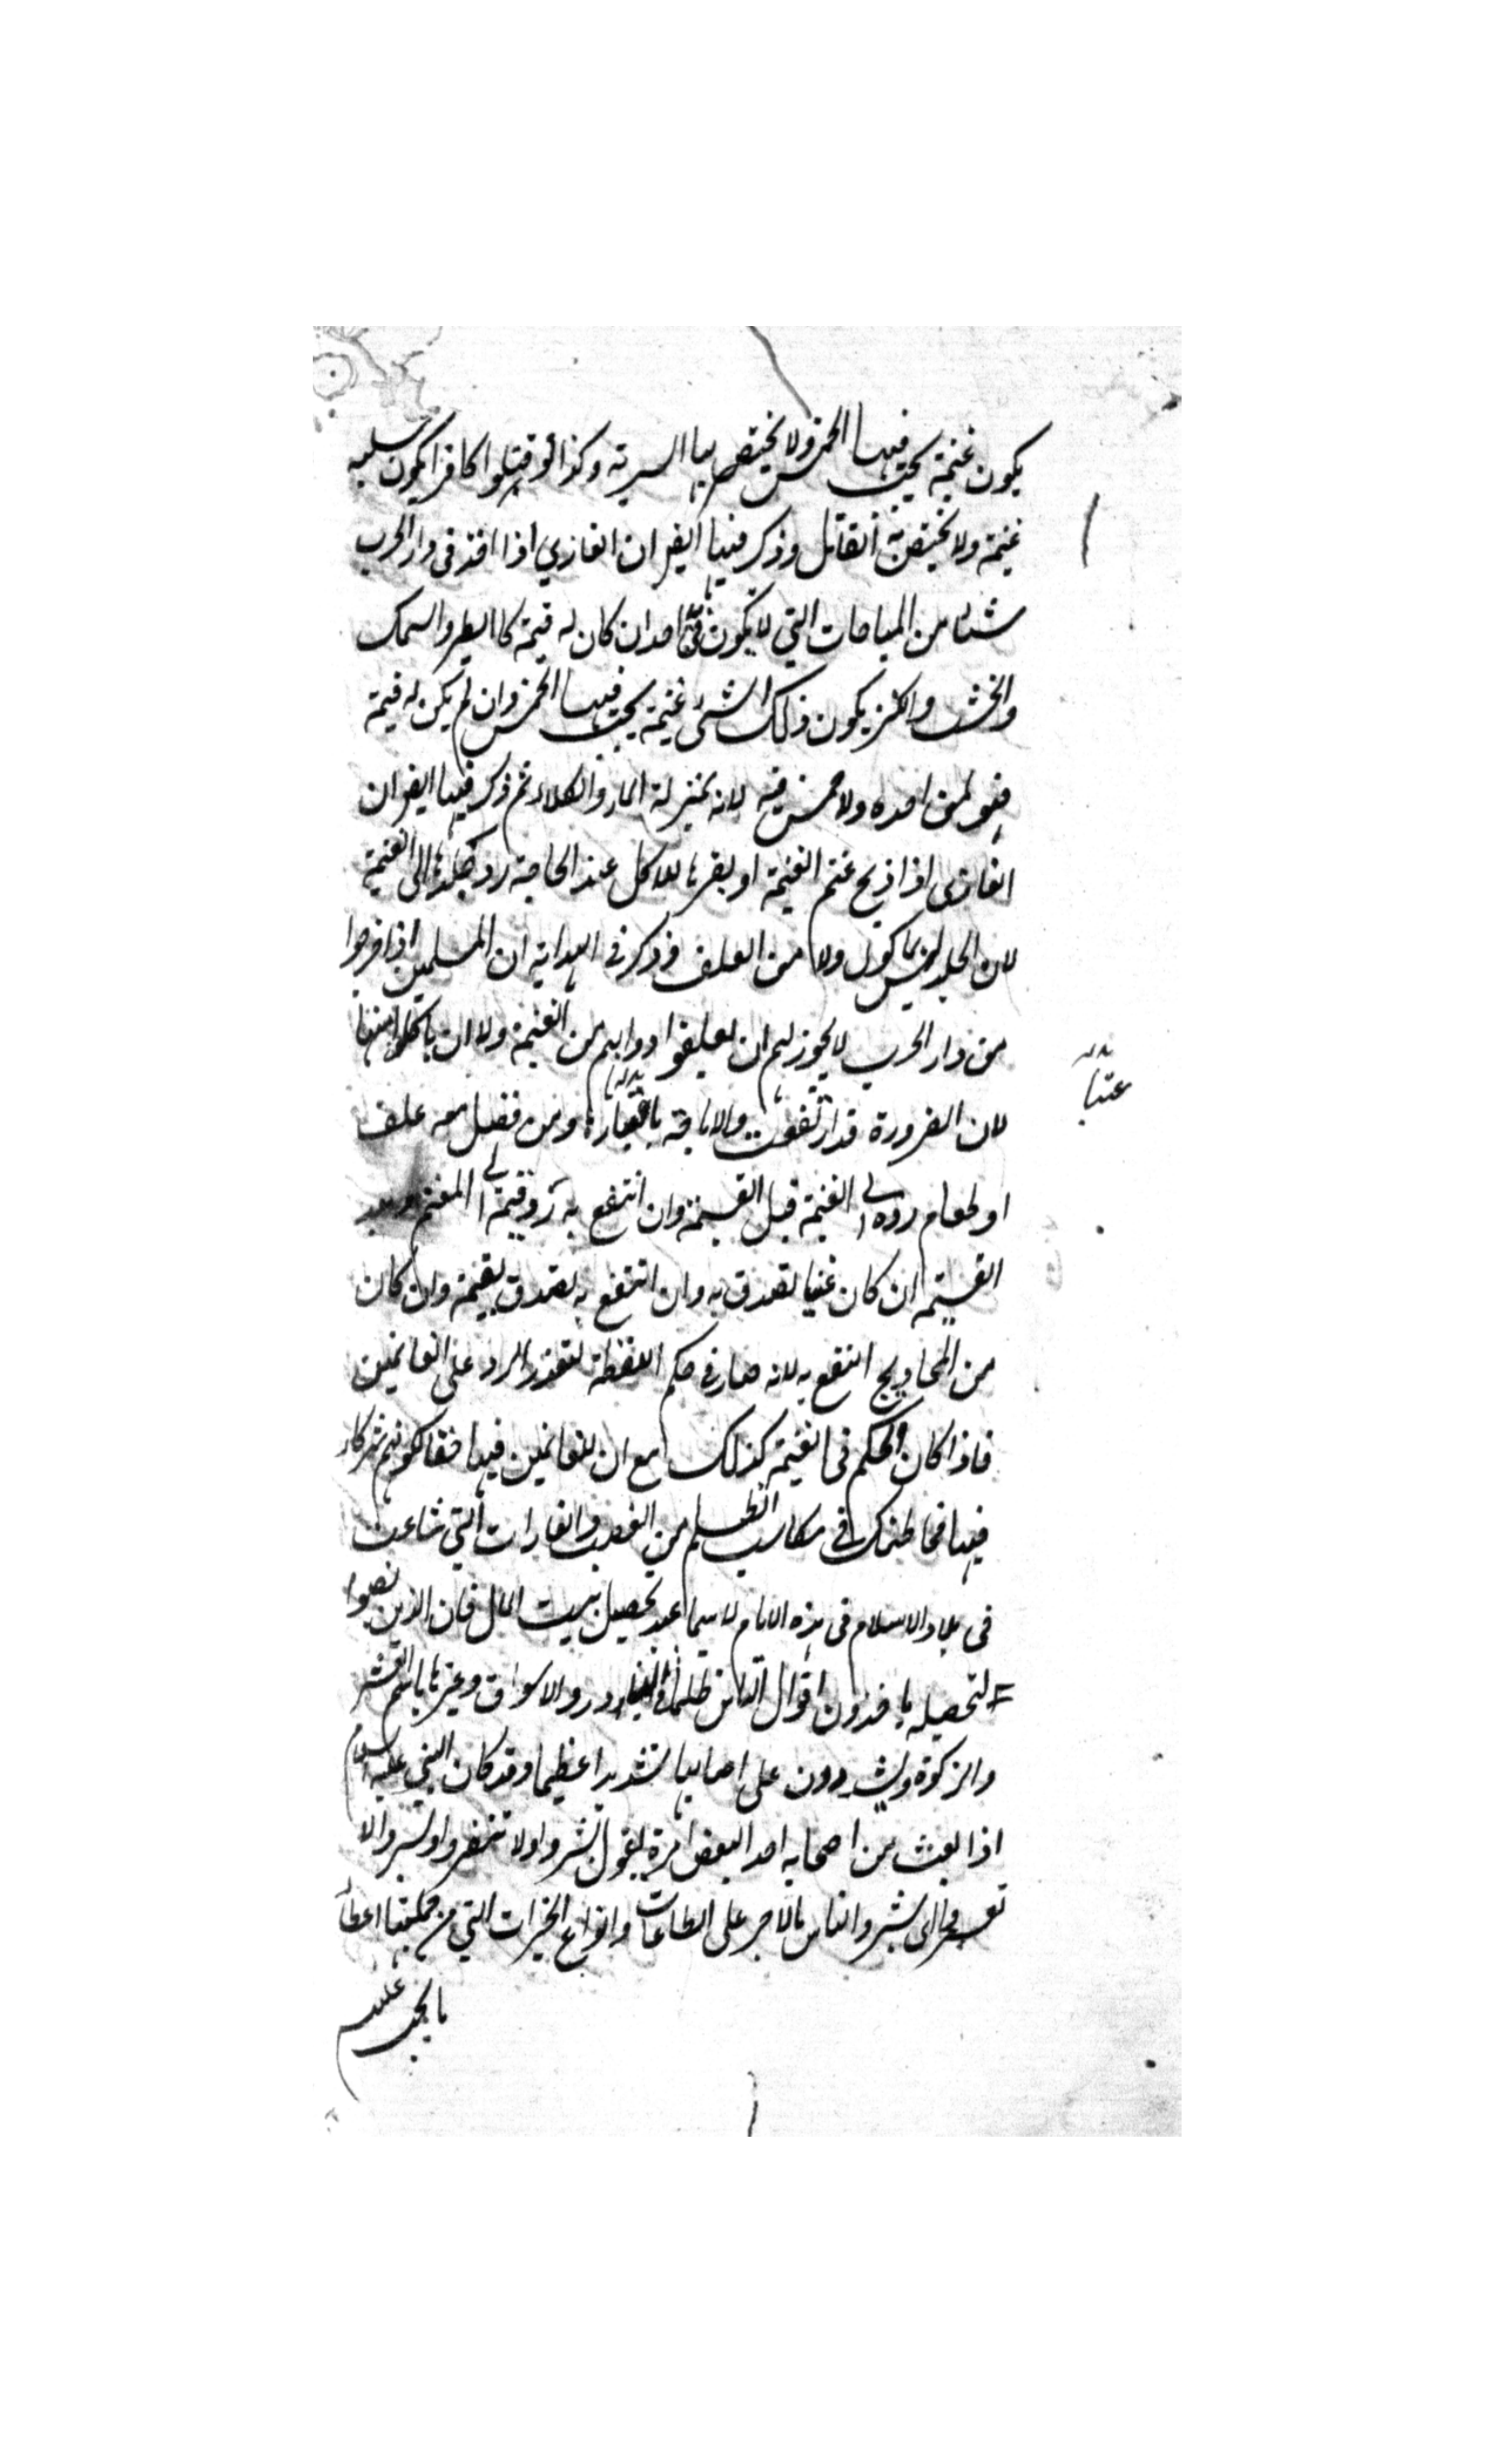 يكون غنيمة يجب فيها الخمس ولا يختص بها السرية وكذا لو قتلوا كافرا يكون سلبه
غنيمة ولا يختص به القاتل وذكر فيها ايضا ان الغازي اذا اخذ في دار الحرب
شيئا من المباحات التي لا يكون في يد احد ان كان له قيمة كالطير والسمك
والخشب والكنز يكون ذلك الشئ غنيمة يجب فيها الخمس وان لم يكن له قيمة
فهو لمن اخذه ولا خمس فيه لانه بمنزلة الماء والكلاء ثم ذكر فيها ايضا ان
الغازى اذا ذبح غنم الغنيمة او بقرها للاكل عند الحاجة رد جلدها الى الغنيمة
لان الجلد ليس بماكول ولا من العلف وذكر في الهداية ان المسلمين اذا خرجوا
من دار الحرب لا يجوز لهم ان يعلفوا دوابهم من الغنيمة ولا ان ياكلوا منها
لان الضرورة قد ارتفعت والاباحة باعتبارها ومن فضل معه علف
او طعام رده الى الغنيمة قبل القسمة وان انتفع به رد قيمته الى المغنم وبعد
القسمة ان كان غنيا تصدق به وان انتفع به تصدق بقيمته وان كان
من المحاويج انتفع به لانه صار في حكم اللقطة لتعذر الرد على الغانمين
فاذا كان الحكم في الغنيمة كذلك مع ان للغانمين فيها حقا لكونهم شركاء
فيها فما ظنك في مكاسب الظلم من الغصب والغارات التي شاعت
في بلاد الاسلام في هذه الايام لا سيما عند تحصيل بيت المال فان الذين نصبوا
لتحصيله ياخذون اموال الناس ظلما في البنادر والاسواق وغيرها باسم العشر
والزكوة ويشددون على اصحابها تشديدا عظيما وقد كان النبي عليه السلام
اذا بعث من اصحابه احدا لبعض امره يقول بشروا ولا تنفروا ويسروا ولا
تعسروا اى بشروا الناس بالاجر على الطاعات وانواع الخيرات التي من جملتها اعطاء
ما يجب عليهم